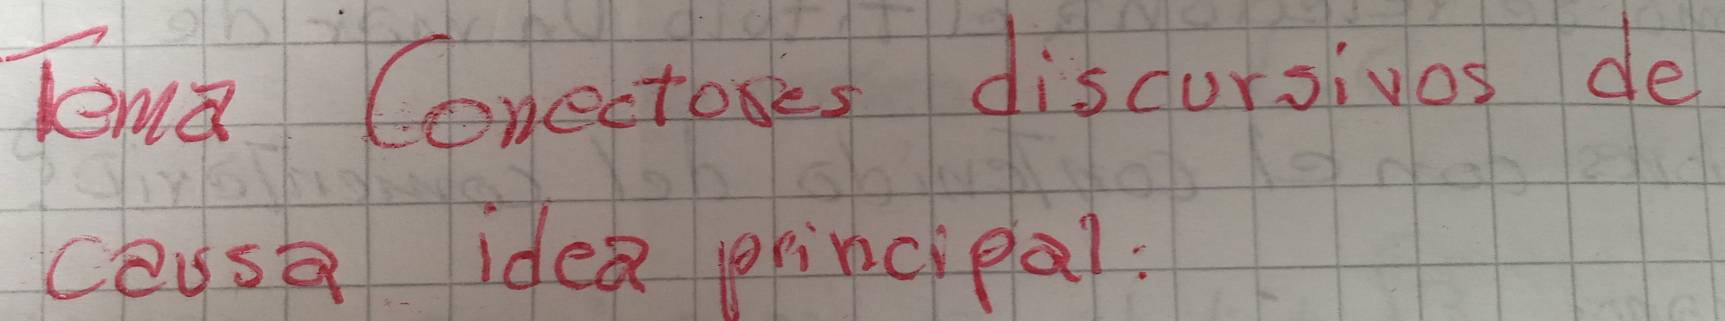 Tema Conectores discursivos de
causa idea principal: